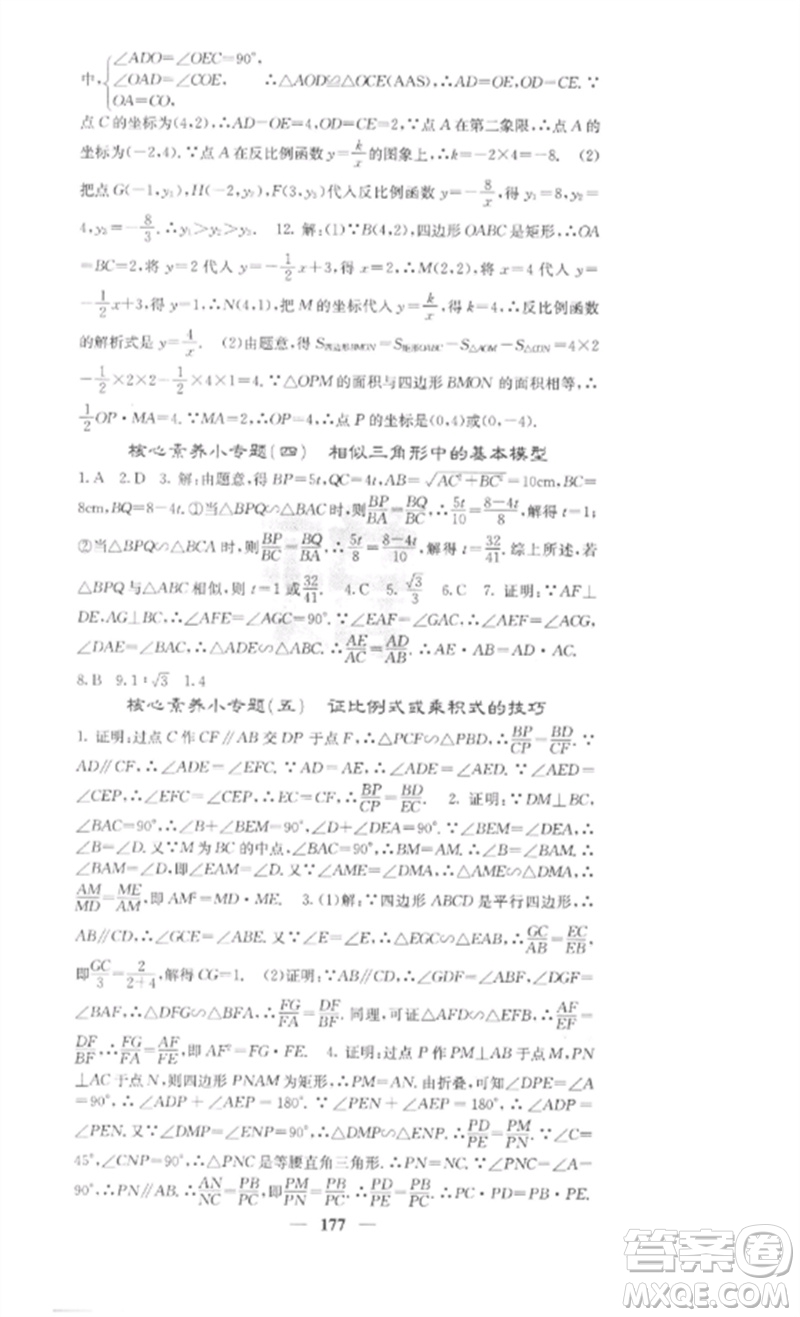 ∠ADO=∠OEC=90°,
中,{∠OAD=∠COE, ∴△AOD≌△OCE(AAS) ∴AD=OE,OD=CE.∵
OA=CO,
点C的坐标为(4,2),∴AD=OE=4,OD=CE=2.∵点A在第二象限,∴点A的
坐标为(-2,4).∵点A在反比例函数 y=k/x 的图象上,∴k=-2×4=-8. (2)
把点G(-1,y₁),H(-2,y₂),F(3,y₃)代入反比例函数 y=-8/x,得 y₁=8,y₂=
4,y₃=-8/3.∴y₁>y₂>y₃. 12.解:(1)∵B(4,2),四边形OABC是矩形,∴OA
=BC=2,将 y=2代入 y=-1/2x+3,得 x=2,∴M(2,2),将 x=4代入 y=
-1/2x+3,得 y=1,∴N(4,1),把M的坐标代入 y=k/x,得 k=4,∴反比例函数
的解析式是 y=4/x. (2)由题意,得 S四边形BMON=S矩形OABC-S△AOM-S△CON=4×2
-1/2×2×2-1/2×4×1=4.∵△OPM的面积与四边形BMON的面积相等,∴
1/2OP·MA=4.∵MA=2,∴OP=4,∴点P的坐标是(0,4)或(0,-4).
核心素养小专题(四) 相似三角形中的基本模型
1.A 2.D 3.解:由题意,得 BP=5t,QC=4t,AB=√AC²+BC²=10cm,BC=
8cm,BQ=8-4t.①当△BPQ∽△BAC时,则BP/BA=BQ/BC,∴5t/10=8-4t/8,解得 t=1;
②当△BPQ∽△BCA时,则BP/BC=BQ/BA,∴5t/8=8-4t/10,解得 t=32/41.综上所述,若
△BPQ与△ABC相似,则 t=1或32/41. 4.C 5.√3/3 6.C 7.证明:∵AF⊥
DE,AG⊥BC,∴∠AFE=∠AGC=90°.∵∠EAF=∠GAC,∴∠AEF=∠ACG,
∠DAE=∠BAC,∴△ADE∽△ABC,∴AE/AC=AD/AB.
8.B 9.1∶√3 1.4
核心素养小专题(五) 证比例式或乘积式的技巧
1.证明:过点C作CF∥AB交DP于点F,∴△PCF∽△PBD,∴BP/CP=BD/CF.∵
AD∥CF,∴∠ADE=∠EFC.∵AD=AE,∴∠ADE=∠AED.∵∠AED=
∠CEP,∴∠EFC=∠CEP,∴EC=CF,∴BP/CP=BD/EC. 2.证明:∵DM⊥BC,
∠BAC=90°,∴∠B+∠BEM=90°,∠D+∠DEA=90°.∵∠BEM=∠DEA,∴
∠B=∠D.又∵M为BC的中点,∠BAC=90°,∴BM=AM,∴∠B=∠BAM,∴
∠BAM=∠D,即∠EAM=∠D.∵∠AME=∠DMA,∴△AME∽△DMA,∴
AM/MD=ME/AM,即 AM²=MD·ME. 3.(1)解:∵四边形ABCD是平行四边形,∴
AB∥CD,∴∠GCE=∠ABE.∵∠E=∠E,∴△EGC∽△EAB,∴GC/AB=EC/EB,
即GC/3=2/2+4,解得 CG=1. (2)证明:∵∠GDF=∠ABF,∠DGF=
∠BAF,∴△DFG∽△BFA,∴FG/FA=DF/BF.同理,可证△AFD∽△EFB,∴AF/EF=
DF/BF,∴FG/FA=AF/FE,即 AF²=FG·FE. 4.证明:过点P作PM⊥AB于点M,PN
⊥AC于点N,则四边形PNAM为矩形,∴PM=AN.由折叠,可知∠DPE=∠A
=90°,∴∠ADP+∠AEP=180°.∵∠AEP+∠PEN=180°,∴∠ADP=
∠PEN.又∵∠DMP=∠ENP=90°,∴△DMP∽△EMP.∴PD/PE=PM/PN.∵∠C=
45°,∠CNP=90°,∴△PNC是等腰直角三角形,∴PN=NC.∵∠PNC=∠A=
90°,∴PN∥AB.∴AN/NC=PB/PC,即PM/PN=PB/PC,∴PD/PE=PB/PC,∴PC·PD=PB·PE.
— 177 —
答案卷
MXQE.COM